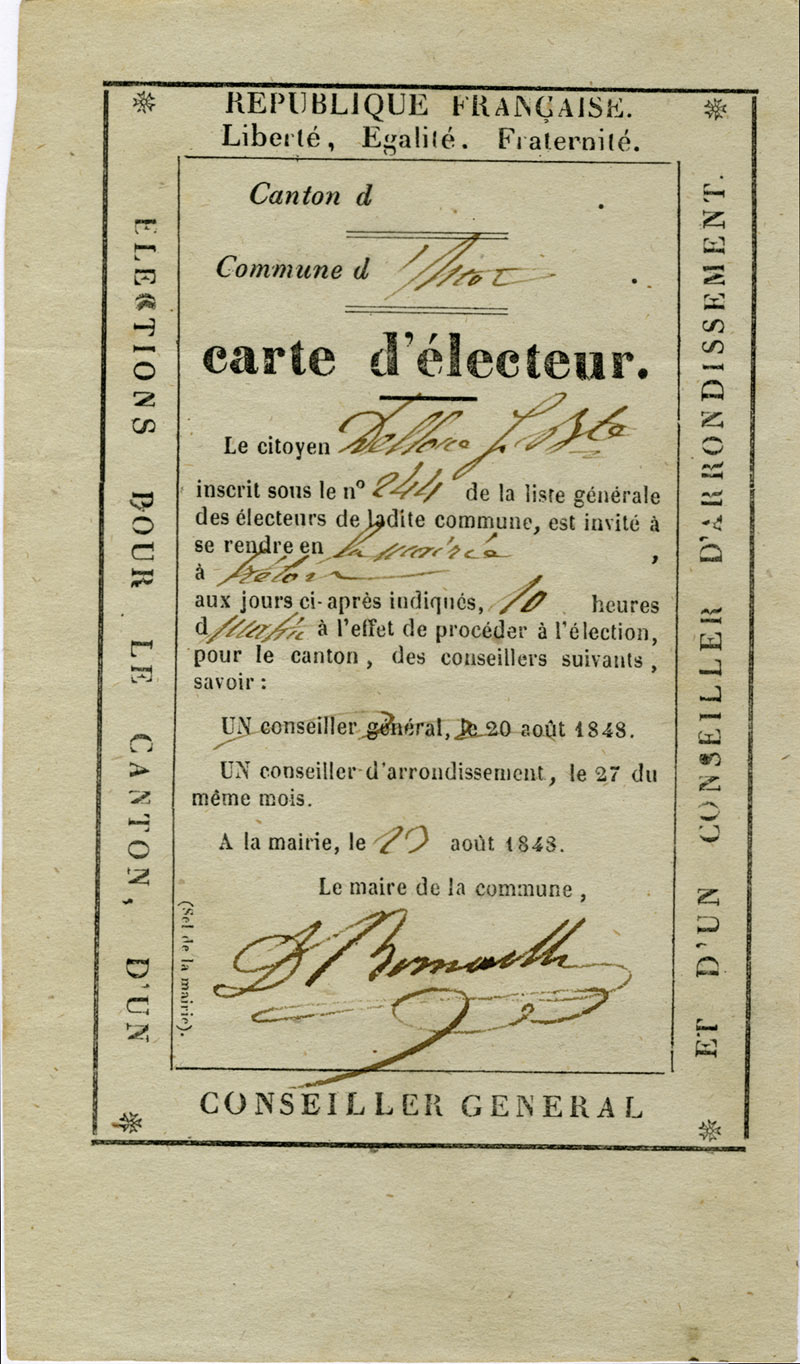 REPUBLIQUE FRANÇAISE.
Liberté, Egalité. Fraternité.
Canton d .
Commune d .
carte d'électeur.
Le citoyen J. Bte
inscrit sous le nº 244 de la liste générale
des électeurs de ladite commune, est invité à
se rendre en la mairie ,
à
aux jours ci-après indiqués, 10 heures
d matin à l'effet de procéder à l'élection,
pour le canton, des conseillers suivants,
savoir :
UN conseiller général, le 20 août 1848.
UN conseiller d'arrondissement, le 27 du
même mois.
A la mairie, le août 1848.
Le maire de la commune,
(Scl de la mairie).
ELECTIONS POUR LE CANTON, D'UN
CONSEILLER GENERAL
ET D'UN CONSEILLER D'ARRONDISSEMENT.